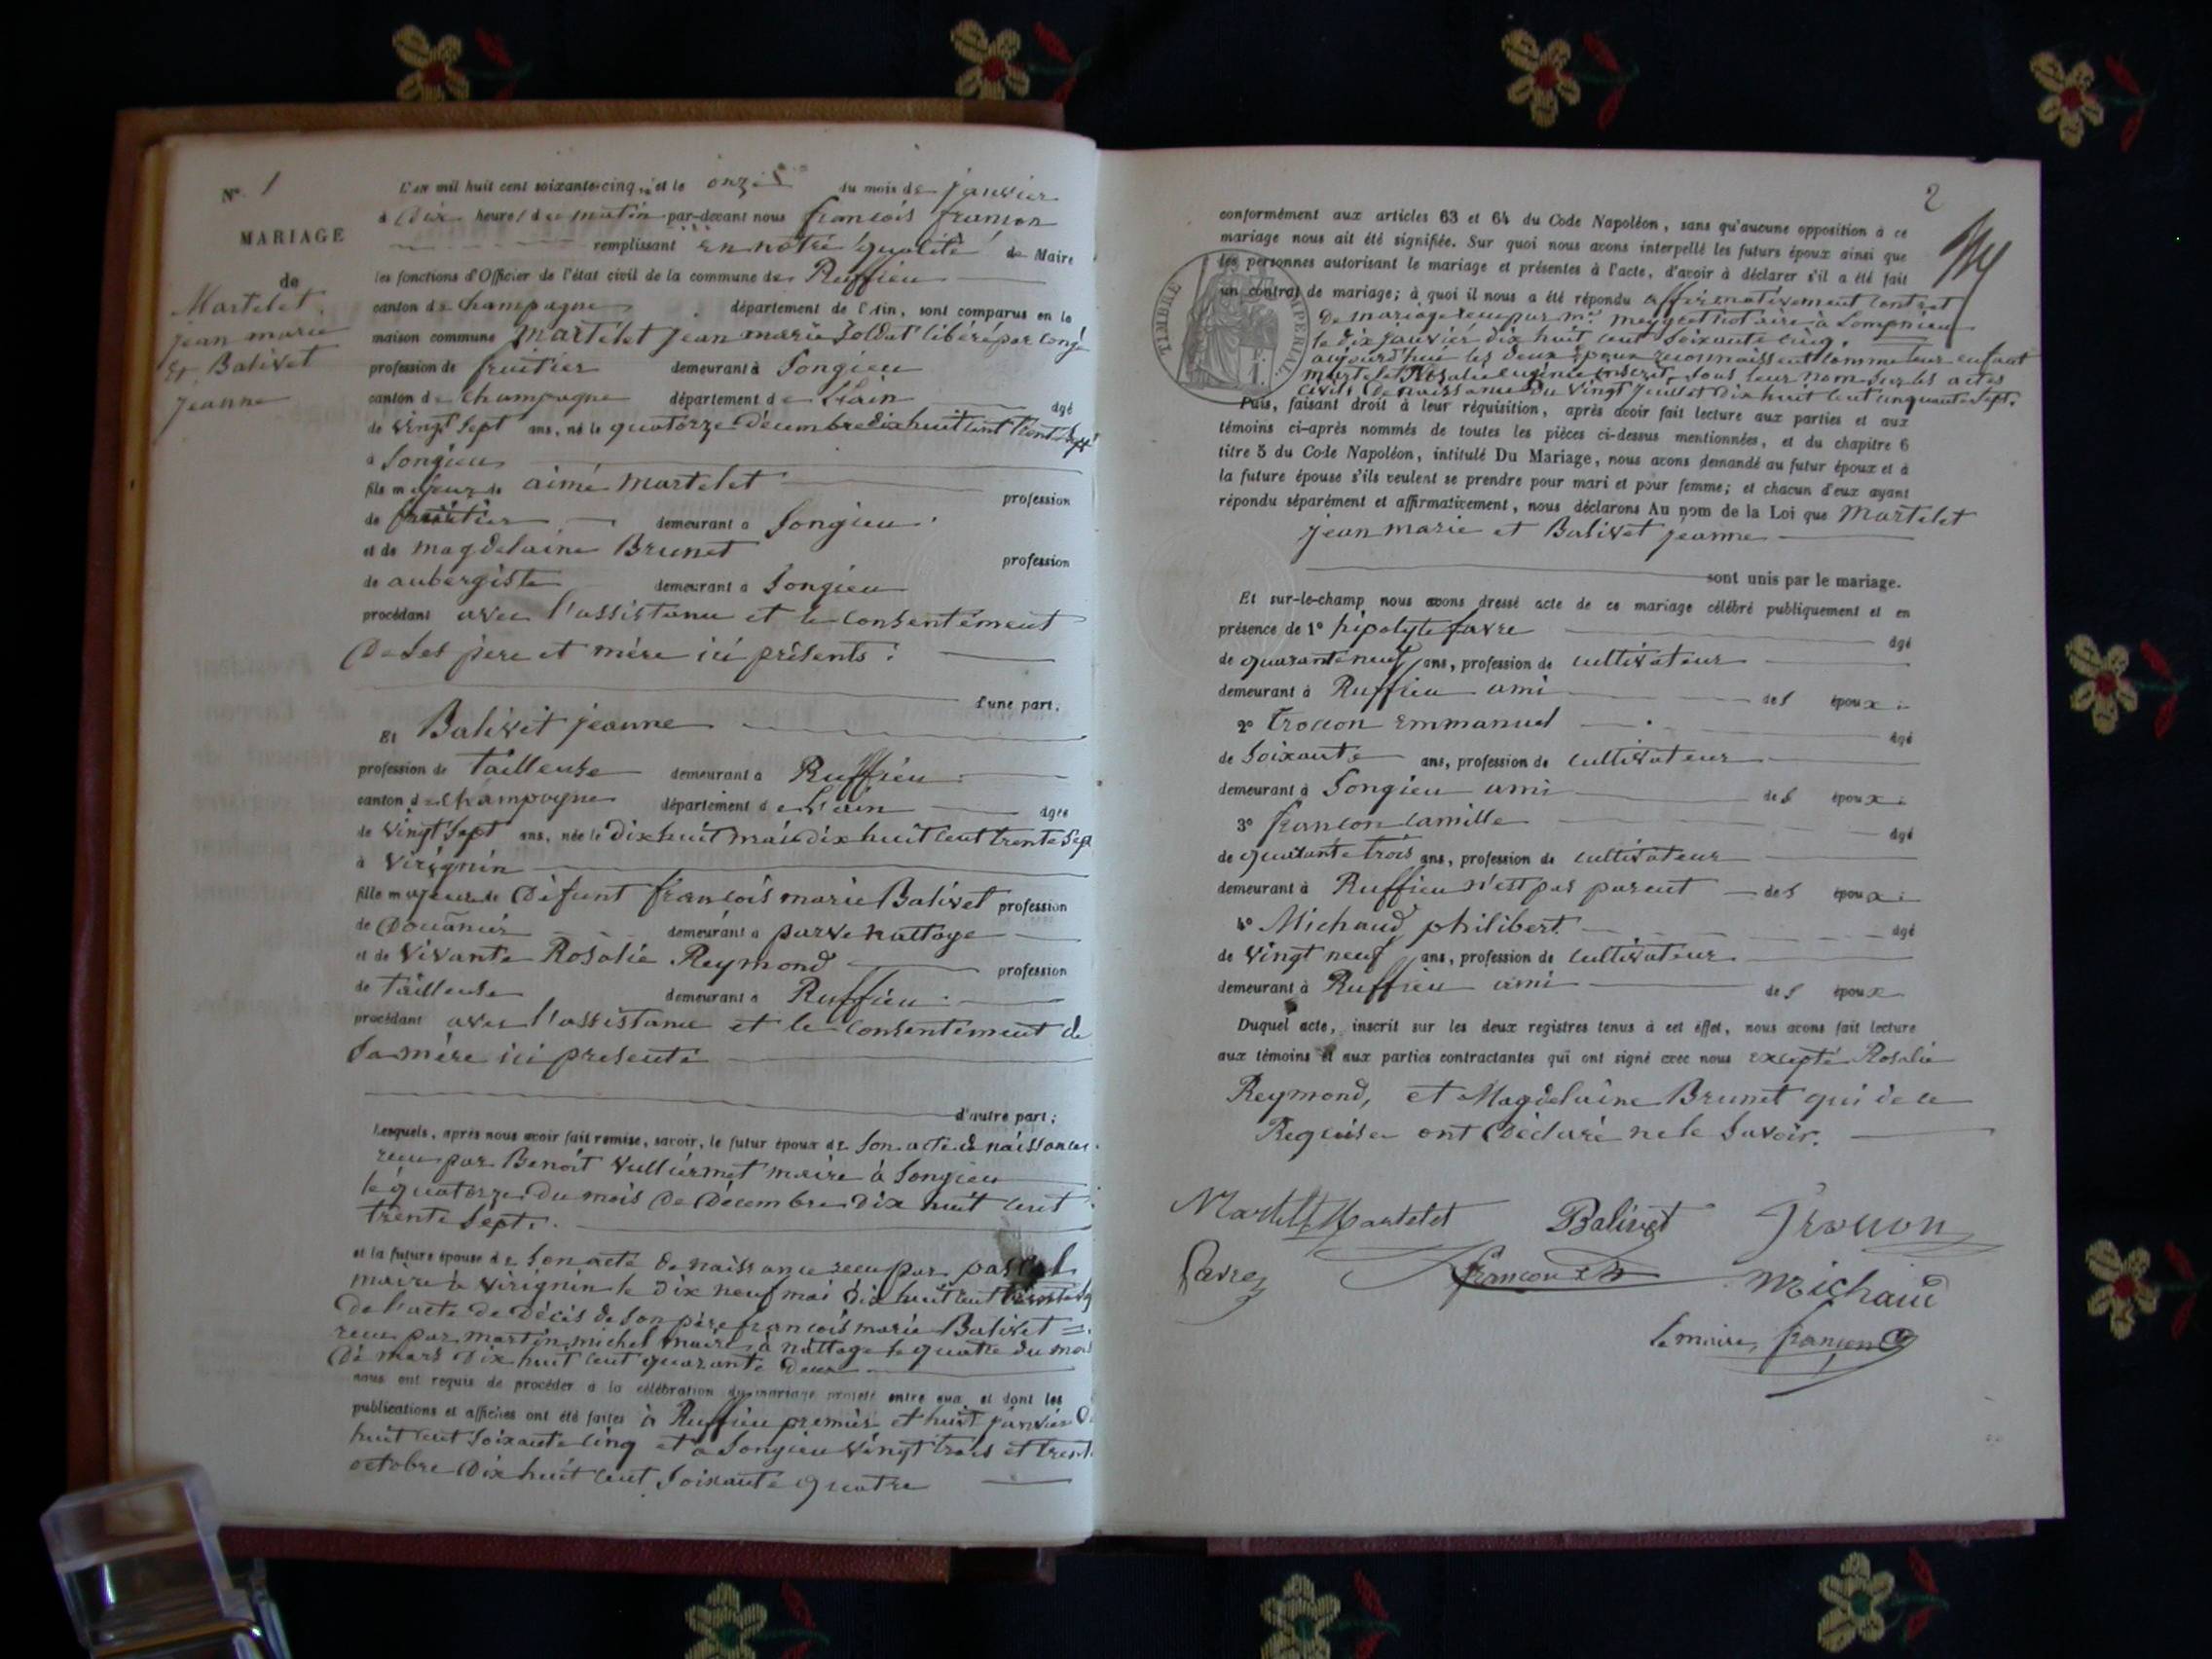 N° 1
MARIAGE
de
Martelet
jean marie
Et Balivet
jeanne
L'an mil huit cent soixante-cinq, et le onze du mois de janvier
à dix heures du matin par-devant nous françois françon
remplissant en notre qualité de Maire
les fonctions d'Officier de l'état civil de la commune de Ruffieu
canton de Champagne département de l'Ain, sont comparus en la
maison commune Martelet jean marie Soldat libéré par congé
profession de fruitier demeurant à Songieu
canton de Champagne département de L'ain âgé
de vingt Sept ans, né le quatorze Décembre dix huit cent trente Sept
à Songieu
fils majeur de aimé Martelet profession
de fruitier demeurant à Songieu
et de magdelaine Brunet profession
de aubergiste demeurant à Songieu
procédant avec l'assistance et le consentement
De Ses père et mère ici présents
d'une part,
Et Balivet jeanne
profession de tailleuse demeurant à Ruffieu
canton de Champagne département de L'ain âgée
de vingt Sept ans, née le Dix huit mai Dix huit cent trente Sep
à Virignin
fille majeure de Défunt françois marie Balivet profession
de Douanier demeurant à nattage
et de Vivante Rosalie Reymond profession
de tailleuse demeurant à Ruffieu
procédant avec l'assistance et le consentement de
Sa mère ici presente
d'autre part;
Lesquels, après nous avoir fait remise, savoir, le futur époux de Son acte de naissance
recu par Benoit Vulliermet maire à Songieu
le quatorze Du mois De Décembre Dix huit cent
trente Sept.
et la future épouse de Son acte De naissance recu par
maire à Virignin le Dix neuf mai Dix huit cent
De l'acte de Décès de Son père françois marie Balivet
recu par martin michel maire à nattage le quatre du mois
De mars Dix huit cent quarante Deux
nous ont requis de procéder à la célébration du mariage projeté entre eux et dont les
publications et affiches ont été faites à Ruffieu premier et huit janvier Di
huit cent Soixante cinq et à Songieu vingt trois et trente
octobre Dix huit cent Soixante quatre
2
conformément aux articles 63 et 64 du Code Napoléon, sans qu'aucune opposition à ce
mariage nous ait été signifiée. Sur quoi nous avons interpellé les futurs époux ainsi que
les personnes autorisant le mariage et présentes à l'acte, d'avoir à déclarer s'il a été fait
un contrat de mariage; à quoi il nous a été répondu affirmativement Contrat
De mariage recu par me notaire à Lompnieu
le dix janvier dix huit cent Soixante cinq.
aujourd'hui les Deux Epoux reconnaissent comme leur enfant
martelet Rosalie eugénie inscrit Sous leur nom Sur les actes
civils De naissance Du vingt juillet Dix huit cent cinquante Sept.
TIMBRE IMPERIAL
Puis, faisant droit à leur réquisition, après avoir fait lecture aux parties et aux
témoins ci-après nommés de toutes les pièces ci-dessus mentionnées, et du chapitre 6
titre 5 du Code Napoléon, intitulé Du Mariage, nous avons demandé au futur époux et à
la future épouse s'ils veulent se prendre pour mari et pour femme; et chacun d'eux ayant
répondu séparément et affirmativement, nous déclarons Au nom de la Loi que Martelet
jean marie et Balivet jeanne
sont unis par le mariage.
Et sur-le-champ nous avons dressé acte de ce mariage célébré publiquement et en
présence de 1° hipolyte favre âgé
de quarante neuf ans, profession de cultivateur
demeurant à Ruffieu ami des époux
2° Trocon Emmanuel âgé
de Soixante ans, profession de cultivateur
demeurant à Songieu ami des époux
3° françon Camille âgé
de quarante trois ans, profession de cultivateur
demeurant à Ruffieu n'est pas parent des époux
4° Michaud philibert âgé
de vingt neuf ans, profession de cultivateur
demeurant à Ruffieu ami des époux
Duquel acte, inscrit sur les deux registres tenus à cet effet, nous avons fait lecture
aux témoins et aux parties contractantes qui ont signé avec nous excepté Rosalie
Reymond, et Magdelaine Brunet qui de ce
Requise ont Déclaré ne le Savoir.
Martelet Martelet Balivet Trocon
Favre françon Michaud
le maire, françon